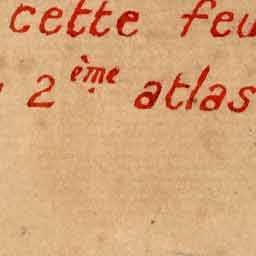 cette feu
2ème atlas